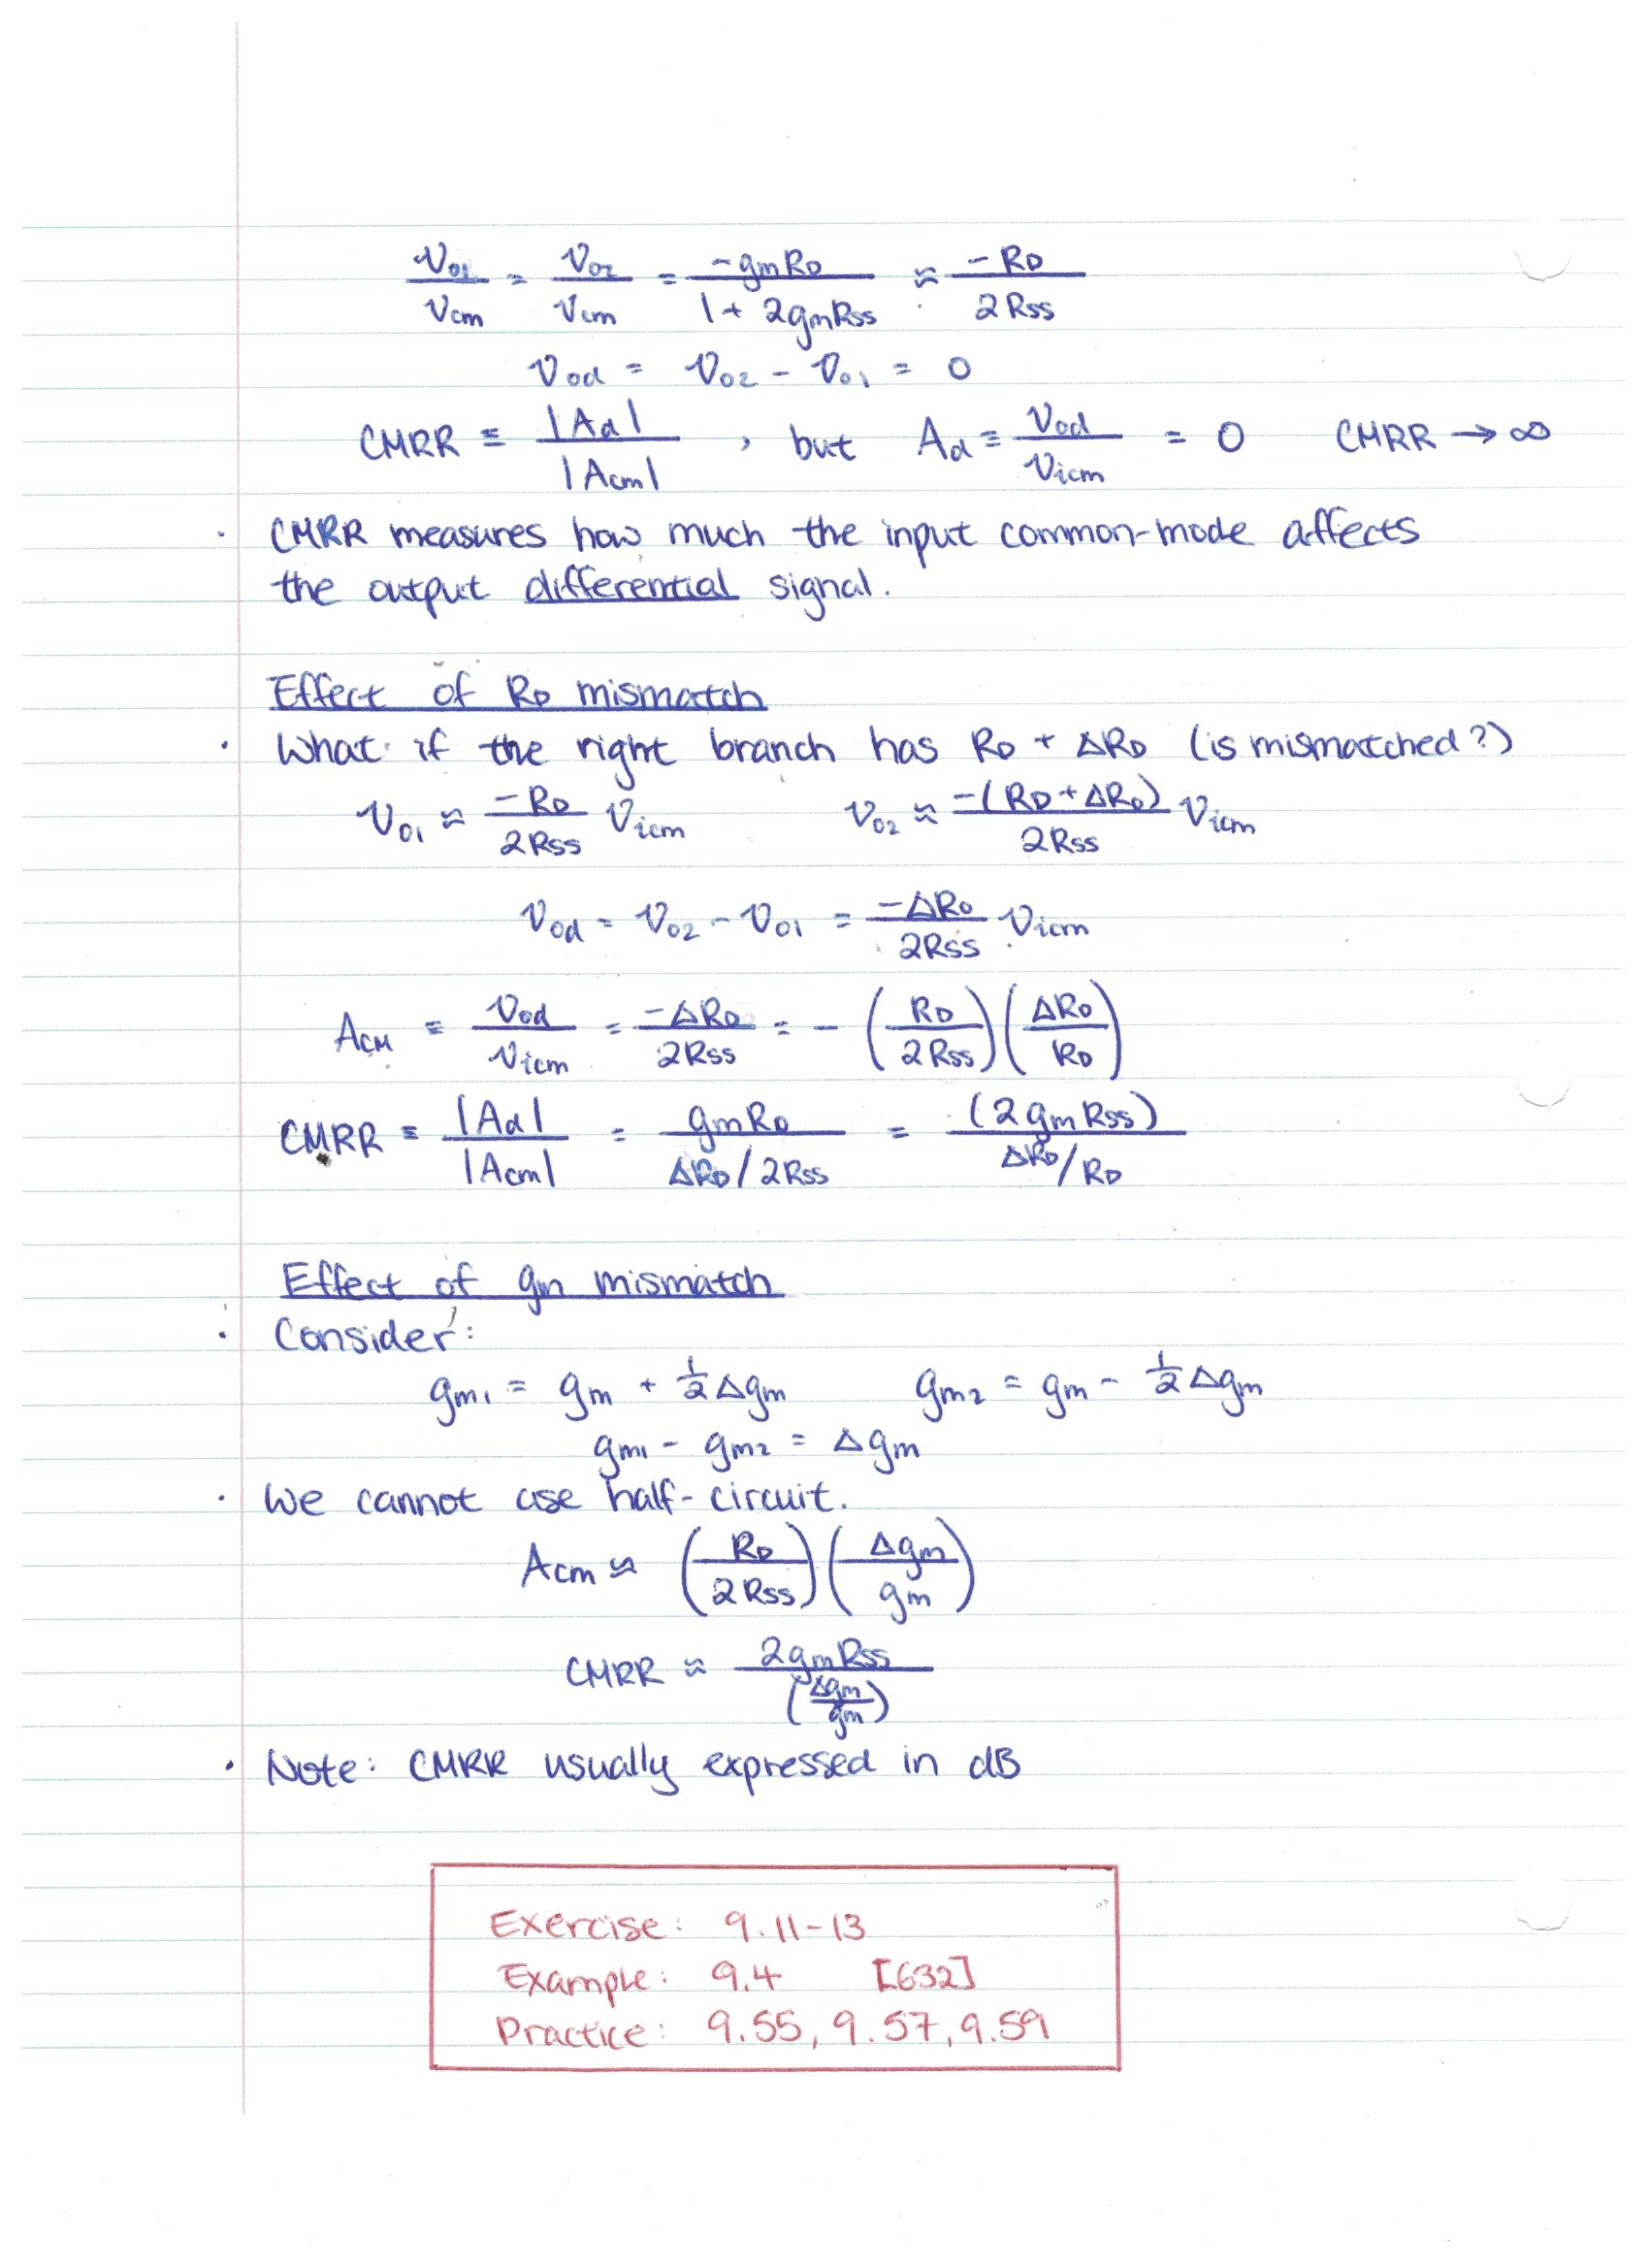 Vo1/Vcm = Vo2/Vcm = -gmRD/(1 + 2gmRss) ≈ -RD/2Rss
Vod = Vo2 - Vo1 = 0
CMRR ≡ |Ad|/|Acm| , but Ad ≡ Vod/Vicm = 0 CMRR → ∞
· CMRR measures how much the input common-mode affects
the output differential signal.
Effect of RD mismatch
· What if the right branch has RD + ΔRD (is mismatched?)
Vo1 ≈ -RD/2Rss Vicm Vo2 ≈ -(RD + ΔRD)/2Rss Vicm
Vod = Vo2 - Vo1 = -ΔRD/2Rss Vicm
ACM = Vod/Vicm = -ΔRD/2Rss = - (RD/2Rss)(ΔRD/RD)
CMRR ≡ |Ad|/|Acm| = gmRD/(ΔRD/2Rss) = (2gmRss)/(ΔRD/RD)
Effect of gm mismatch
· Consider:
gm1 = gm + 1/2 Δgm gm2 = gm - 1/2 Δgm
gm1 - gm2 = Δgm
· We cannot use half-circuit.
Acm ≈ (RD/2Rss)(Δgm/gm)
CMRR ≈ 2gmRss/(Δgm/gm)
· Note: CMRR usually expressed in dB
Exercise: 9.11-13
Example: 9.4 [632]
Practice: 9.55, 9.57, 9.59